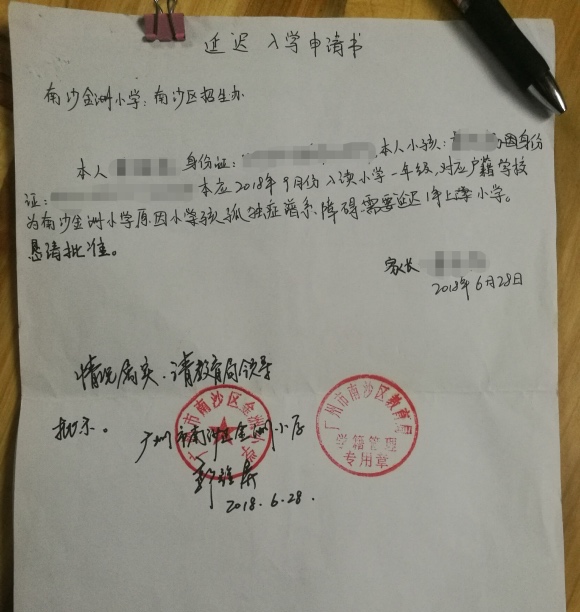 延迟入学申请书
南沙金洲小学：南沙区招生办
本人 身份证： ,本人小孩： 身份
证： 本应2018年9月份入读小学一年级,对应户籍学校
为南沙金洲小学原因小学孩孤独症谱系障碍需要延迟1年上小学。
恳请批准。
家长
2018年6月28日
情况属实,请教育局领导
批示。
广州市南沙区金洲小学
2018.6.28.
广州市南沙区金洲小学
广州市南沙区教育局
学籍管理
专用章